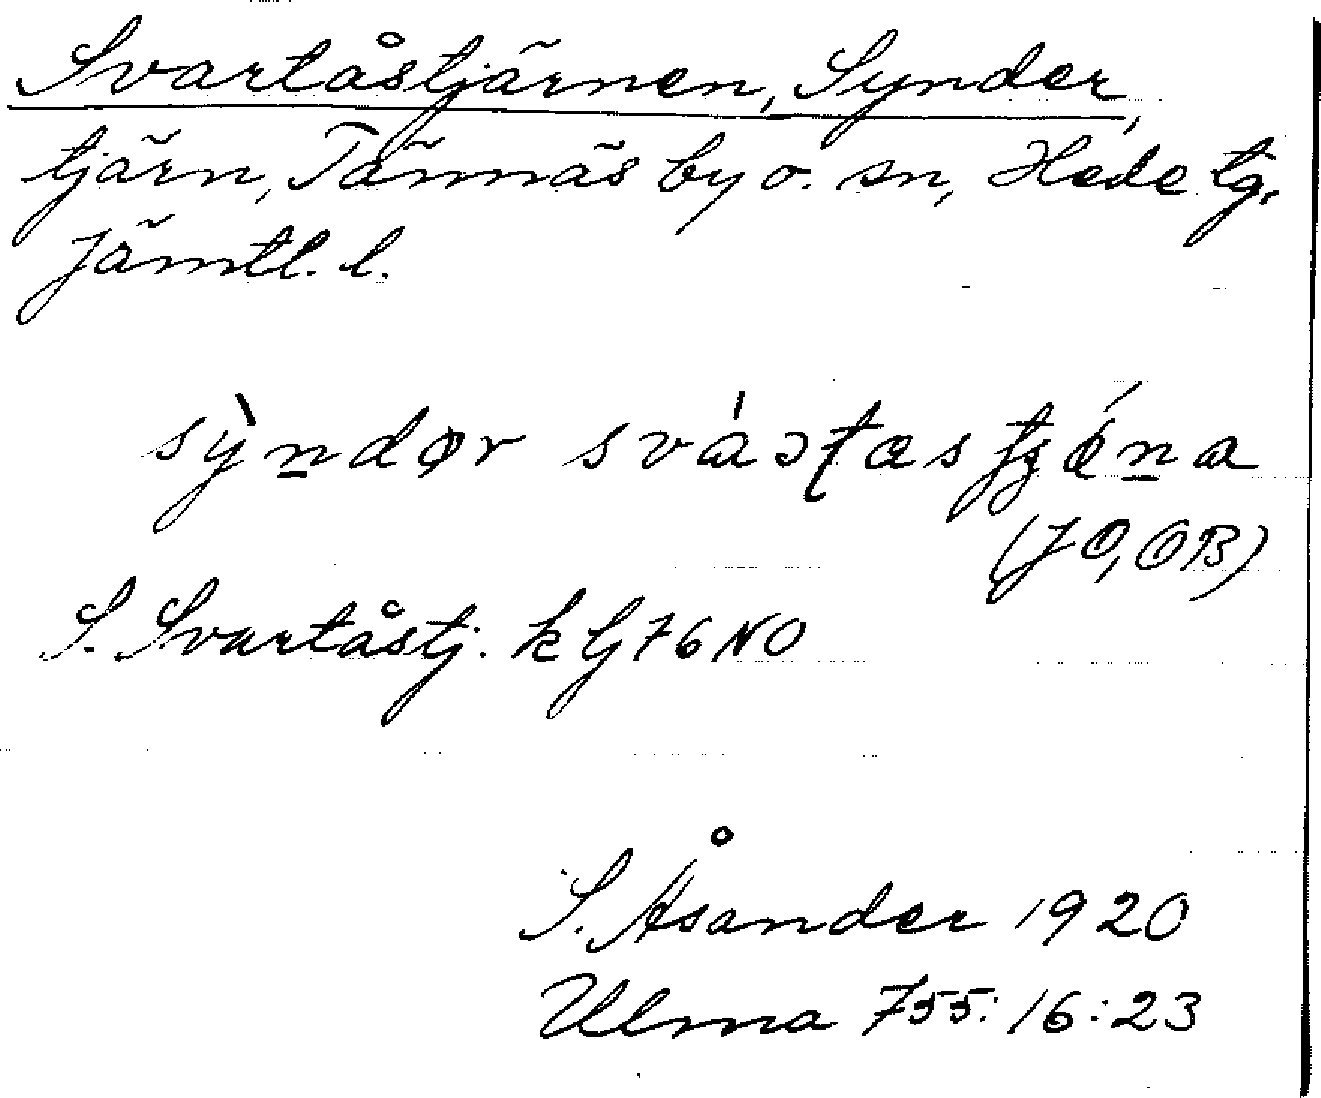 Svartåstjärnen, Synder,
tjärn, Tännäs by o. sn, Hede tg.
Jämtl. l.
(JO, OB)
S. Svartåstj. k lj 76 NO
S. Åsander 1920
Ulma 755:16:23